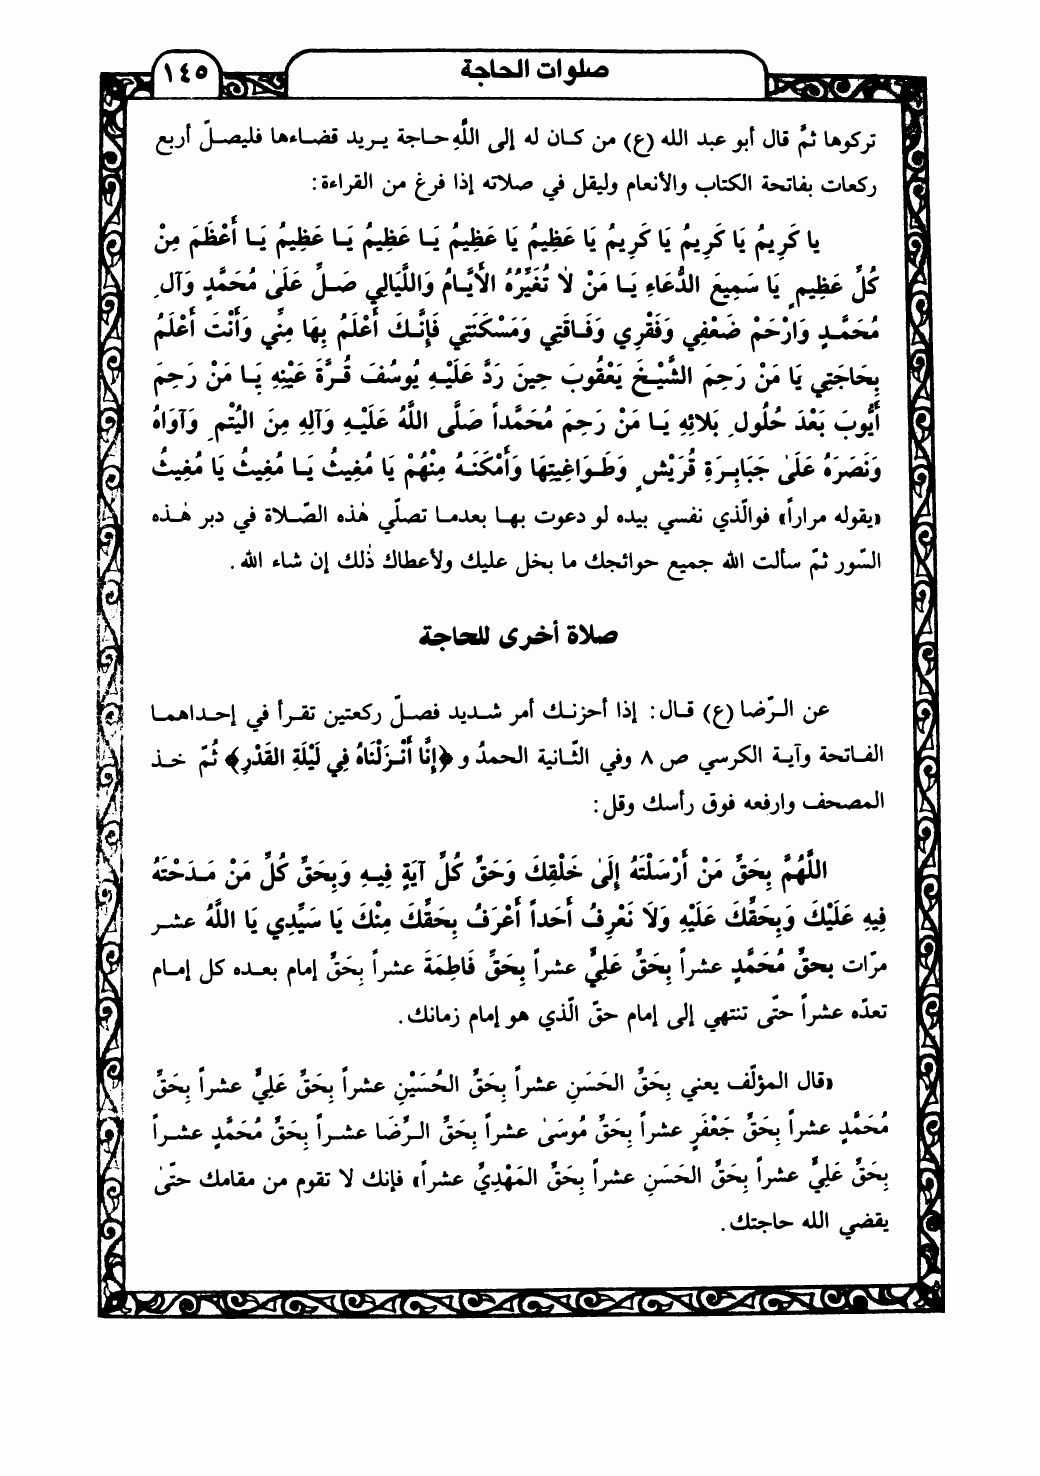 صلوات الحاجة
١٤٥
تركوها ثمَّ قال أبو عبد الله (ع) من كـان له إلى اللَّهِ حـاجة يـريد قضـاءها فليصـلّ أربع
ركعات بفاتحة الكتاب والأنعام وليقل في صلاته إذا فرغ من القراءة:
يا كَرِيمُ يَا كَرِيمُ يَا كَرِيمُ يَا عَظِيمُ يَا عَظِيمُ يَـا عَظِيمُ يَـا عَظِيمُ يَـا أَعْظَمَ مِنْ
كُلِّ عَظِيمٍ يَا سَمِيعَ الدُّعَاءِ يَـا مَنْ لاٰ تُغَيِّرُهُ الأَيَّـامُ وَاللَّيَالِي صَـلِّ عَلَىٰ مُحَمَّدٍ وَآلِ
مُحَمَّـدٍ وَارْحَمْ ضَعْفِي وَفَقْرِي وَفَـاقَتِي وَمَسْكَنَتِي فَإِنَّـكَ أَعْلَمُ بِهَا مِنِّي وَأَنْتَ أَعْلَمُ
بِحَاجَتِي يَا مَنْ رَحِمَ الشَّيْـخَ يَعْقُوبَ حِينَ رَدَّ عَلَيْـهِ يُوسُفَ قُـرَّةَ عَيْنِهِ يَـا مَنْ رَحِمَ
أَيُّوبَ بَعْدَ حُلُولِ بَلائِهِ يَـا مَنْ رَحِمَ مُحَمَّداً صَلَّى اللَّهُ عَلَيْـهِ وَآلِهِ مِنَ اليُتْمِ وَآوَاهُ
وَنَصَرَهُ عَلَىٰ جَبَابِـرَةِ قُرَيْشٍ وَطَـوَاغِيتِهَا وَأَمْكَنَـهُ مِنْهُمْ يَا مُغِيثُ يَـا مُغِيثُ يَا مُغِيثُ
«يقوله مراراً» فوالّذي نفسي بيده لو دعوت بهـا بعدمـا تصلّي هٰذه الصّـلاة في دبر هٰـذه
السّور ثمّ سألت الله جميع حوائجك ما بخل عليك ولأعطاك ذٰلك إن شاء الله .
صلاة أخرى للحاجة
عن الـرّضا (ع) قـال: إذا أحزنـك أمر شـديد فصـلّ ركعتين تقـرأ في إحـداهمـا
الفـاتحة وآيـة الكرسي ص ٨ وفي الثّـانية الحمدُ و ﴿إِنَّا أَنْـزَلْنَاهُ فِي لَيْلَةِ القَدْرِ﴾ ثُمّ خـذ
المصحف وارفعه فوق رأسك وقل:
اللَّهُمَّ بِحَقِّ مَنْ أَرْسَلْتَهُ إِلَىٰ خَلْقِكَ وَحَقِّ كُلِّ آيَةٍ فِيـهِ وَبِحَقِّ كُلِّ مَنْ مَـدَحْتَهُ
فِيهِ عَلَيْكَ وَبِحَقِّكَ عَلَيْهِ وَلاَ نَعْرِفُ أَحَداً أَعْرَفُ بِحَقِّكَ مِنْكَ يَا سَيِّدِي يَا اللَّهُ عشـر
مرّات بحقِّ مُحَمَّدٍ عشراً بِحَقِّ عَلِيٍّ عشراً بِحَقِّ فَاطِمَةَ عشراً بِحَقِّ إمام بعـده كل إمـام
تعدّه عشراً حتّى تنتهي إلى إمام حقّ الّذي هو إمام زمانك.
«قال المؤلّف يعني بِحَقِّ الحَسَنِ عشراً بِحَقِّ الحُسَيْنِ عشراً بِحَقِّ عَلِيٍّ عشراً بِحَقِّ
مُحَمَّدٍ عشراً بِحَقِّ جَعْفَرٍ عشراً بِحَقِّ مُوسَىٰ عشراً بِحَقِّ الـرِّضَا عشـراً بِحَقِّ مُحَمَّدٍ عشـراً
بِحَقِّ عَلِيٍّ عشراً بِحَقِّ الحَسَنِ عشراً بِحَقِّ المَهْدِيِّ عشراً» فإنك لا تقوم من مقامك حتّىٰ
يقضي الله حاجتك.